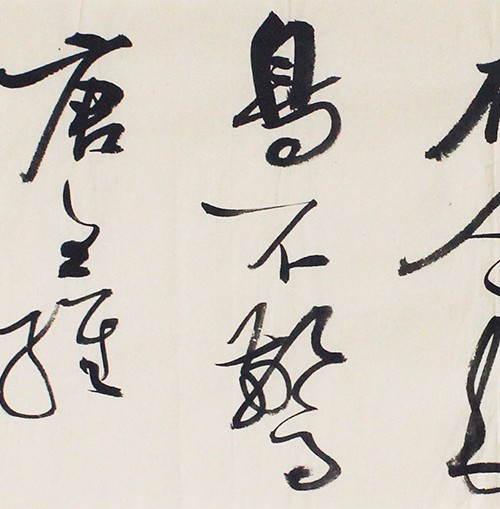 鳥不驚
唐王維